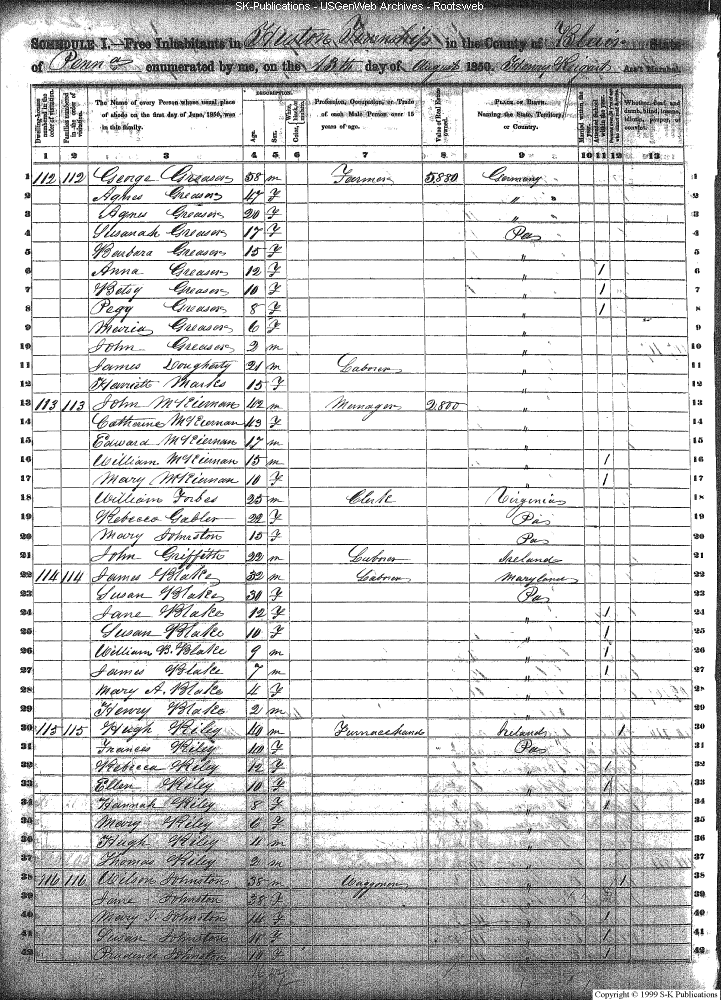 SK-Publications - USGenWeb Archives - Rootsweb
SCHEDULE I.—Free Inhabitants in Huston Township in the County of State
of Penna enumerated by me, on the 13th day of August 1850. Henry Ass't Marshal.
Dwelling-houses numbered in the order of visitation.
Families numbered in the order of visitation.
The Name of every Person whose usual place of abode on the first day of June, 1850, was in this family.
DESCRIPTION.
Age.
Sex.
White, black, or mulatto. Color
Profession, Occupation, or Trade of each Male Person over 15 years of age.
Value of Real Estate owned.
PLACE OF BIRTH. Naming the State, Territory, or Country.
Married within the year.
Attended School within the year.
Whether deaf and dumb, blind, insane, idiotic, pauper, or convict.
1 2 3 4 5 6 7 8 9 10 11 12 13
1 112 112 George Greaser 58 m Farmer 5,880 Germany 1
2 Agnes Greaser 47 F " " 2
3 Agnes Greaser 20 F " " 3
4 Susanah Greaser 17 F Pa 4
5 Barbara Greaser 15 F " 5
6 Anna Greaser 12 F " / 6
7 Betsy Greaser 10 F " / 7
8 Pegy Greaser 8 F " / 8
9 Maria Greaser 6 F " 9
10 John Greaser 2 m " 10
11 James Dougherty 21 m Laborer " 11
12 Henrietta Marks 15 F " 12
13 113 113 John McKiernan 42 m Manager 2,800 " 13
14 Catharine McKiernan 43 F " 14
15 Edward McKiernan 17 m " 15
16 William McKiernan 15 m " / 16
17 Mary McKiernan 10 F " / 17
18 William Forbes 25 m Clerk Virginia 18
19 Rebecca Gabler 22 F Pa 19
20 Mary Johnston 15 F Pa 20
21 John Griffith 22 m Laborer Ireland 21
22 114 114 James Blake 32 m Laborer Maryland 22
23 Susan Blake 30 F Pa 23
24 Jane Blake 12 F " / 24
25 Susan Blake 10 F " / 25
26 William B. Blake 9 m " / 26
27 James Blake 7 m " / 27
28 Mary A. Blake 4 F " 28
29 Henry Blake 2 m " 29
30 115 115 Hugh Riley 40 m Furnacehand Ireland / 30
31 Frances Riley 40 F Pa 31
32 Rebecca Riley 12 F " / 32
33 Ellen Riley 10 F " / 33
34 Hannah Riley 8 F " / 34
35 Mary Riley 6 F " 35
36 Hugh Riley 4 m " 36
37 Thomas Riley 2 m " 37
38 116 116 Wilson Johnston 38 m Waggoner " / 38
39 Jane Johnston 38 F " 39
40 Mary J. Johnston 14 F " / 40
41 Susan Johnston F " / 41
42 Prudence Johnston F " / 42
Copyright © 1999 S-K Publications